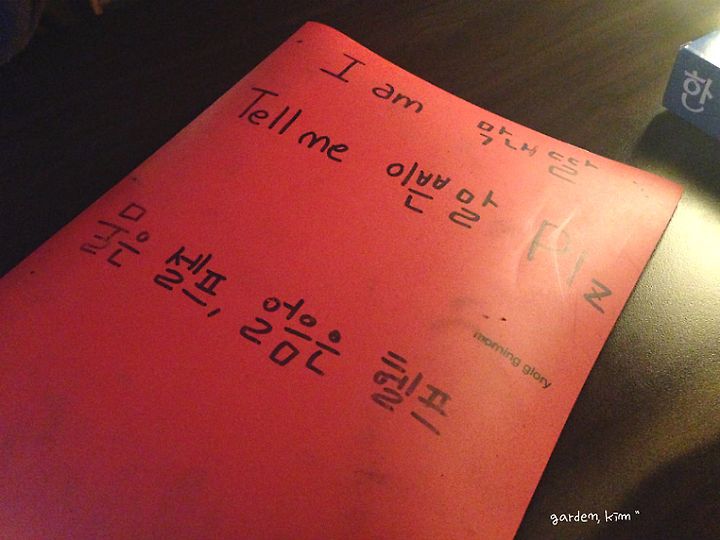 I am 막내딸
Tell me 이쁜말 Plz
물은 셀프, 얼음은 헬프
morning glory
한
garden, kim"